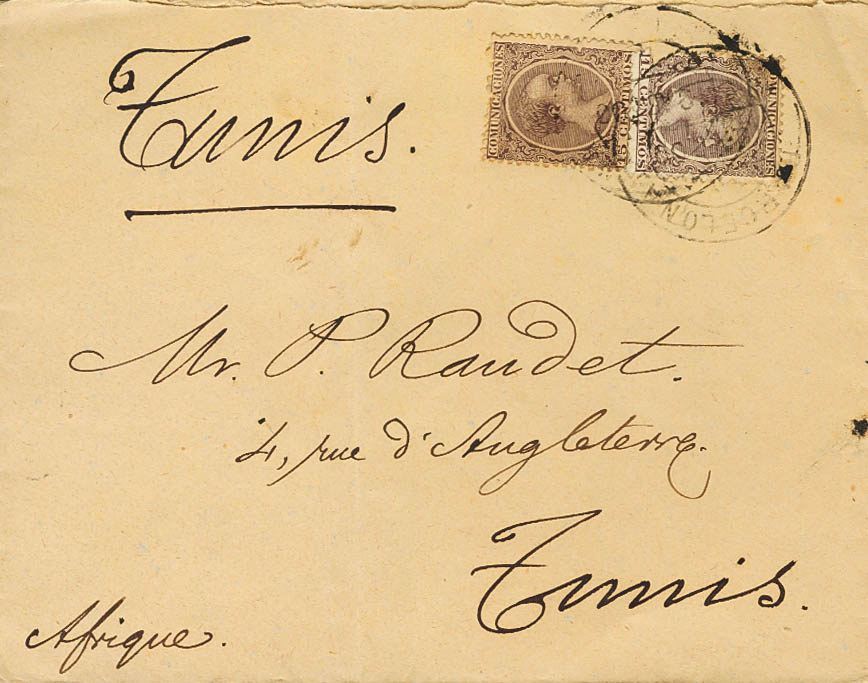 Tunis.
COMUNICACIONES
15 CENTIMOS
15 CENTIMOS
COMUNICACIONES
BARCELON
Mr. P. Raudet.
4, rue d'Angleterre.
Tunis.
Afrique.